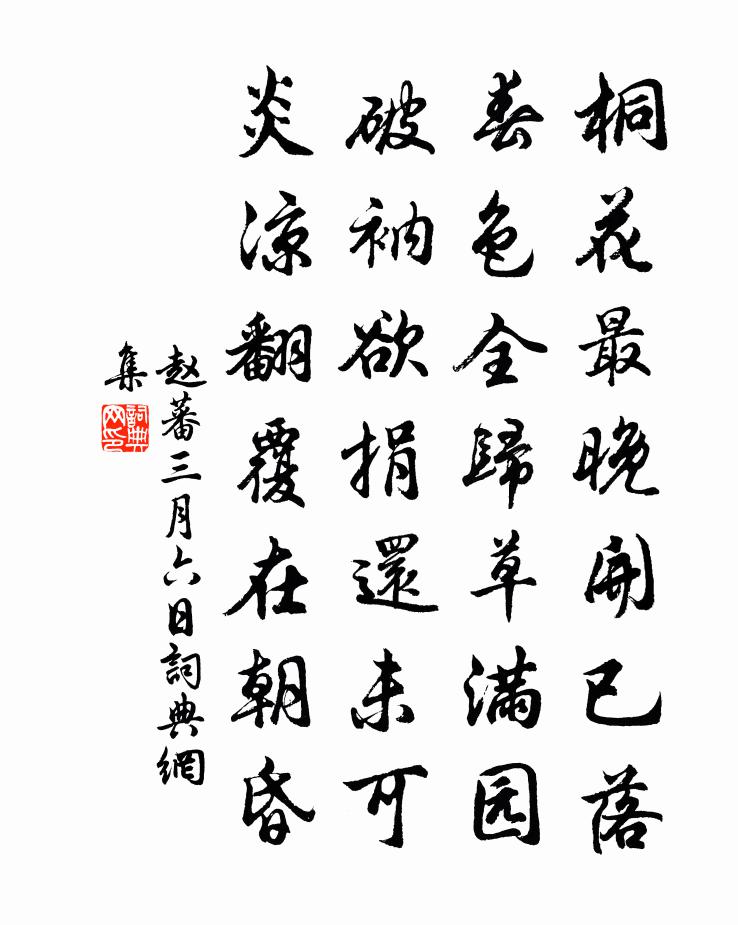 桐花最晚開已落
春色全歸草满园
破衲欲捐還未可
炎凉翻覆在朝昏
赵蕃三月六日詞典網
集
詞典
网印